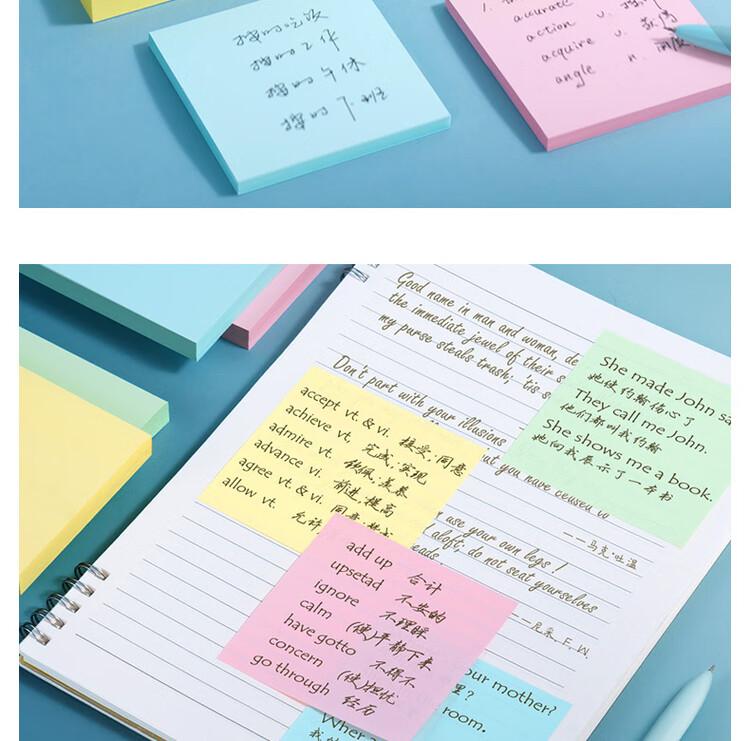 按时吃饭
按时工作
按时午休
按时下班
1.
accurate
action v.
acquire v.
angle n.
Good name in man and woman, de
the immediate jewel of their s
my purse steals trash; 'tis s
Don't part with your illusions
ut you have ceused
use your own legs!
aloft; do not seat yourselves
eads.
——马克·吐温
——尼采. F. W.
She made John sa
她使约翰伤心了
They call me John.
他们都叫我约翰
She shows me a book.
她向我展示了一本书
accept vt. & vi. 接受,同意
achieve vt. 完成,实现
admire vt. 钦佩,羡慕
advance vi. 前进,提高
agree vt. & vi. 同意
allow vt. 允许
add up 合计
upsetad 不安的
ignore 不理睬
calm (使)平静下来
have gotto 不得不
concern (使)担忧
go through 经历
our mother?
里?
room.
Wher
我的